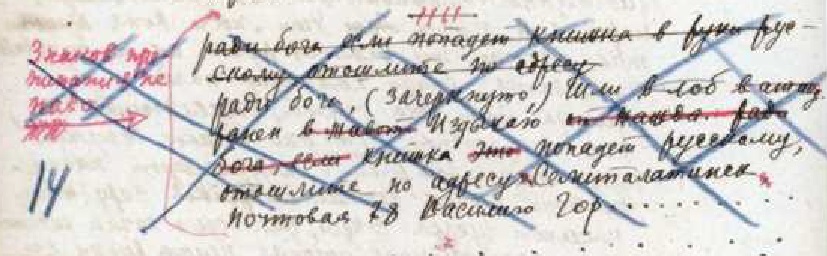 ради бога если попадет книшка в руки рус-
скому отошлите по адресу
ради бога, (Зачеркнуто,) Шли в лоб в атту
ранен в живот Издыхаю радо
бога, если книшка это попадет русскому,
отошлите по адресу Семипалатинск
почтовая 28 Василию Гор..........
Знаков при
не
14